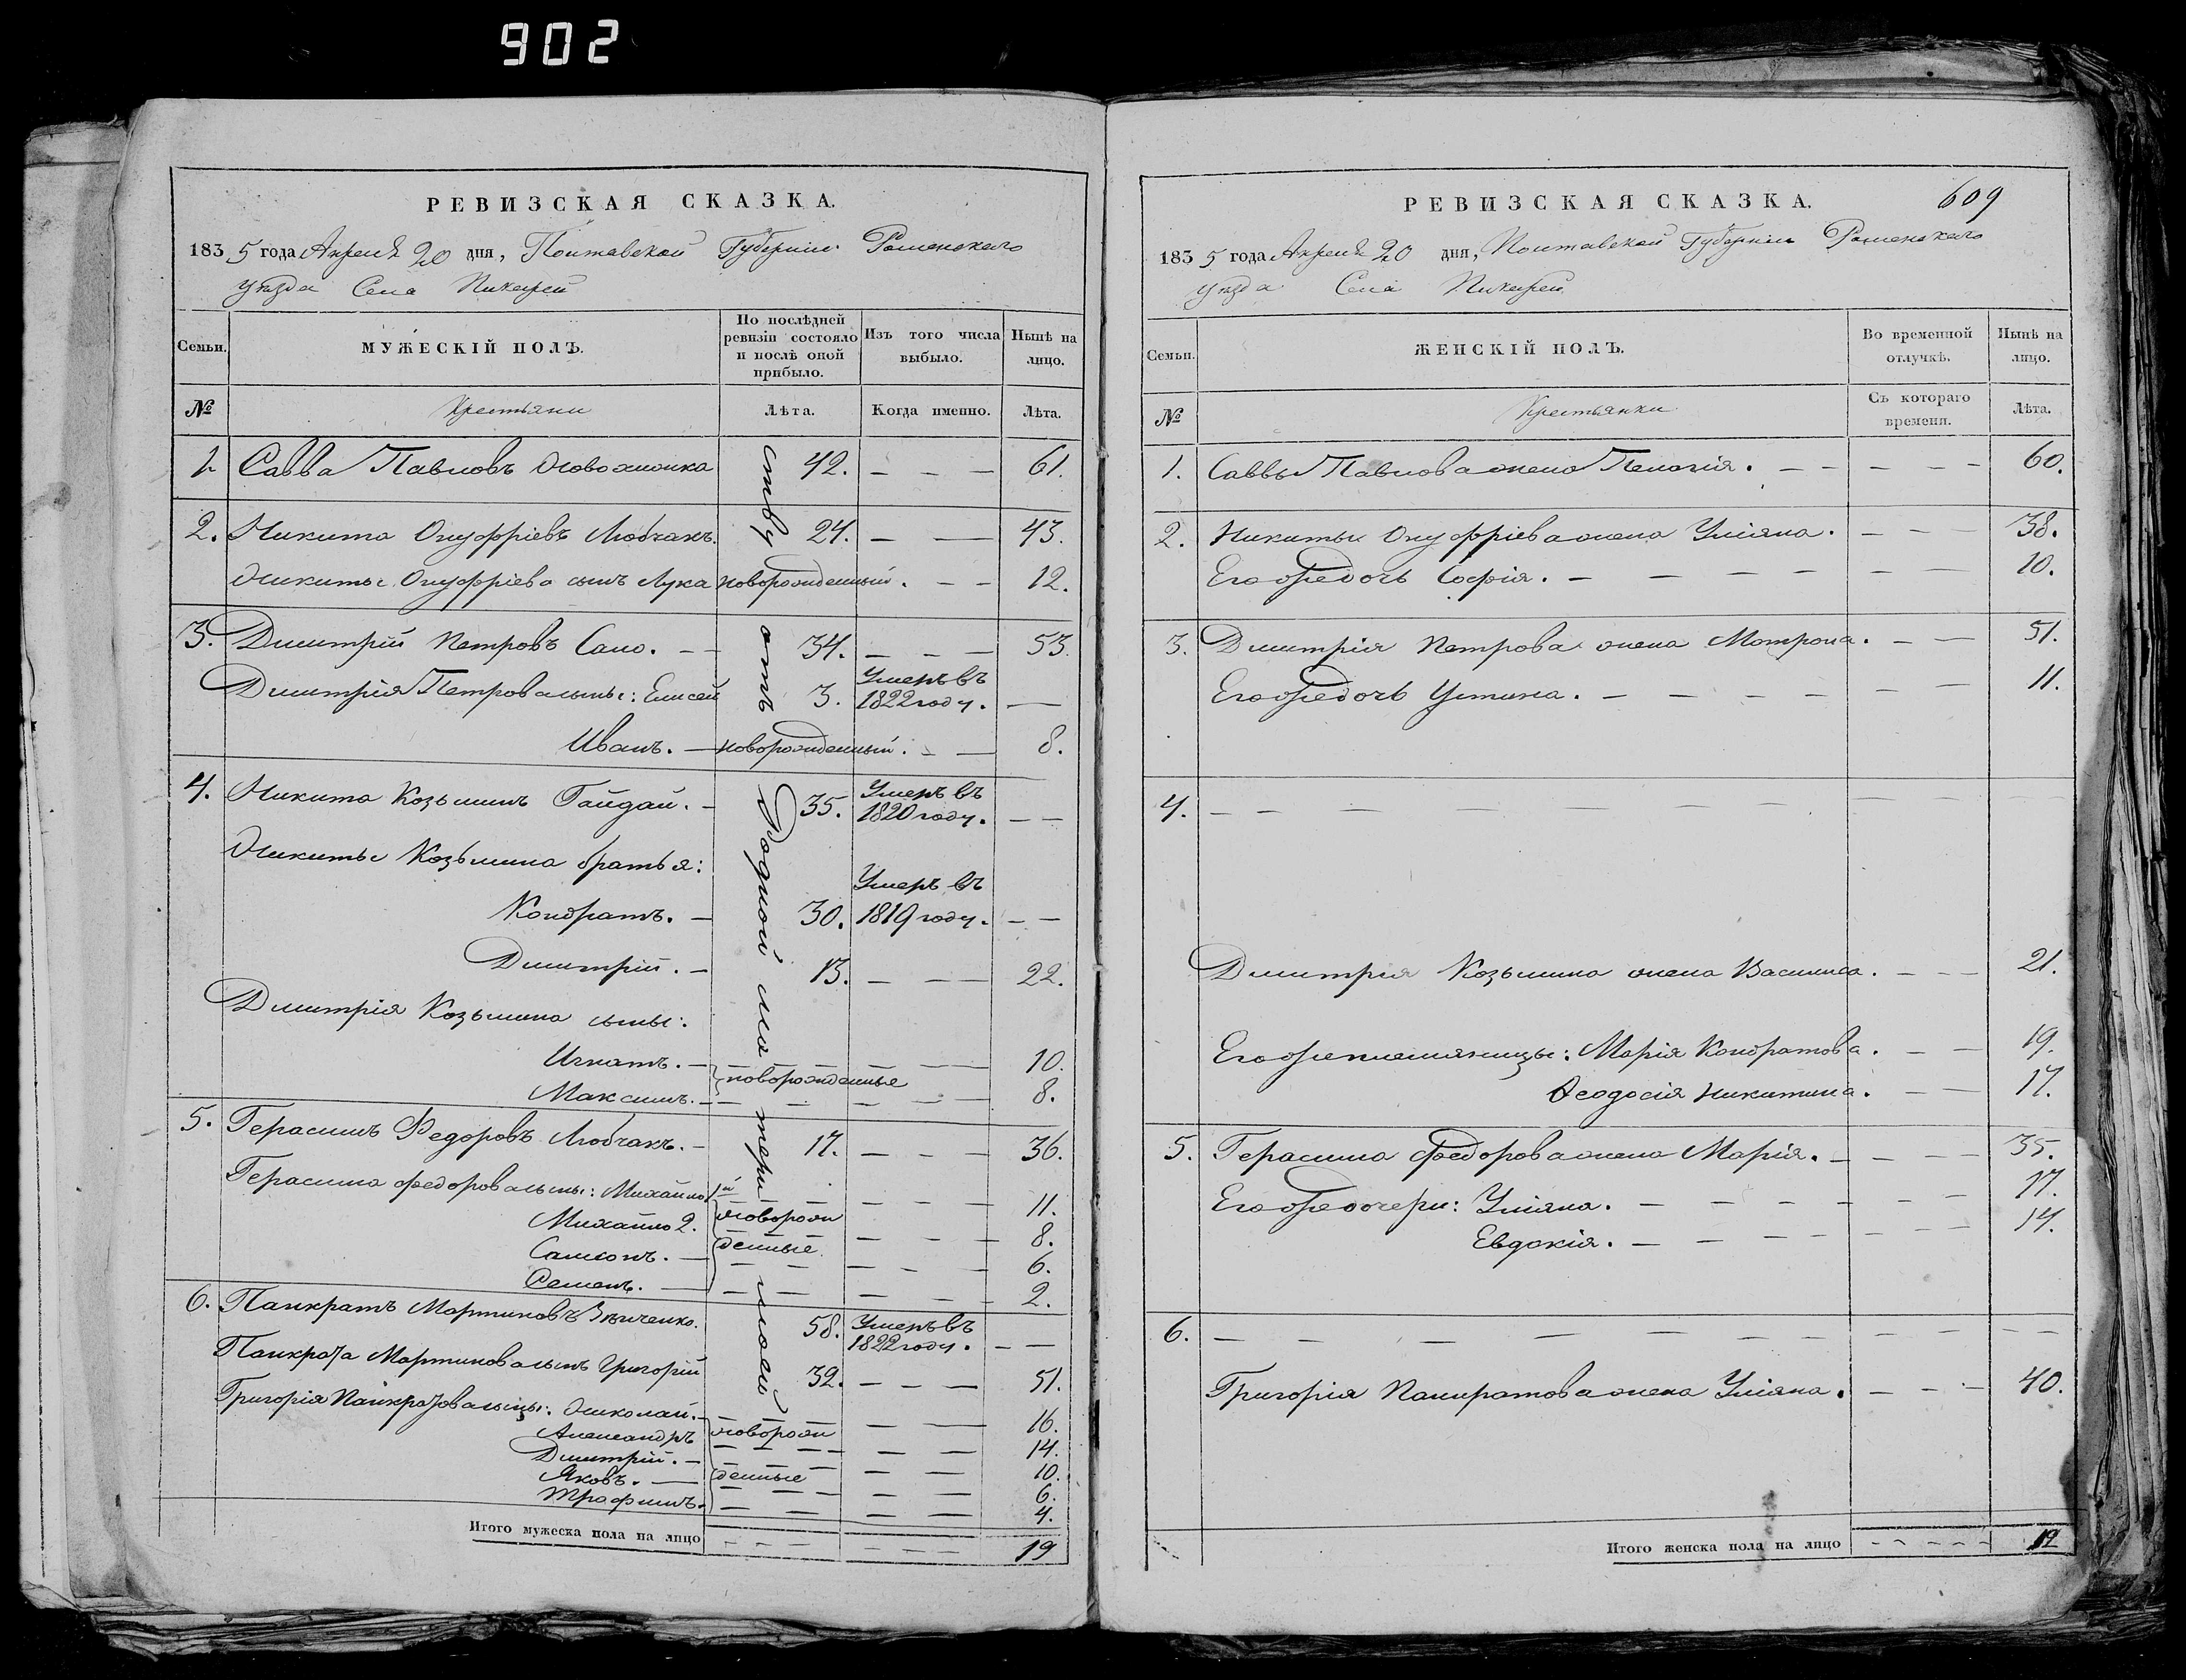 902
РЕВИЗСКАЯ СКАЗКА.
1835 года Апреля 20 дня, Полтавской Губерніи Роменскаго
уѣзда Села
Семьи. МУЖЕСКІЙ ПОЛЪ. По послѣдней ревизіи состояло и послѣ оной прибыло. Изъ того числа выбыло. Нынѣ на лицо.
№ Крестьяни Лѣта. Когда именно. Лѣта.
1. Савва Павловъ 42. — — — 61.
2. Никита Онуфріевъ Любчакъ. 24. — — 43.
Никиты Онуфріева сынъ Лука новорожденный. — — 12.
3. Дмитрій Петровъ Сало. — — 34. — — — 53.
Дмитрія Петрова сыны: Елисей 3. Умеръ въ 1822 году. —
Иванъ. — новорожденный. — — 8.
4. Никита Козьминъ Гайдай. — 35. Умеръ въ 1820 году. — —
Никиты Козьмина братья:
Кондратъ. — 30. Умеръ въ 1819 году. — —
Дмитрій. — 13. — — — 22.
Дмитрія Козьмина сыны:
Игнатъ. — новорожденные — — 10.
Максимъ. — — — — 8.
5. Герасимъ Федоровъ Любчакъ. — 17. — — — 36.
Герасима Федорова сыны: Михайло 1й — — — 11.
Михайло 2. новорож — — — 8.
Самсонъ. — денные — — — 6.
Семенъ. — — — — 2.
6. Панкратъ Мартиновъ 58. Умеръ въ 1822 году. — —
Панкрата Мартинова сынъ Григорій 32. — — — 51.
Григорія Панкратова сыны: Николай. — — — 16.
Александръ новорож — — 14.
Дмитрій. — — — 10.
Яковъ. — денные — — 6.
Трофимъ. — — — 4.
Итого мужеска пола на лицо — — — 19
родной матери моей
РЕВИЗСКАЯ СКАЗКА. 609
1835 года Апреля 20 дня, Полтавской Губерніи Роменскаго
уѣзда Села
Семьи. ЖЕНСКІЙ ПОЛЪ. Во временной отлучкѣ. Нынѣ на лицо.
№ Крестьянки Съ котораго времени. Лѣта.
1. Саввы Павлова жена Пелагія. — — — — — 60.
2. Никиты Онуфріева жена Уліяна. — — — 38.
Его же дочь Софія. — — — — — — 10.
3. Дмитрія Петрова жена Мотрона. — — 51.
Его же дочь Устина. — — — — — — 11.
4. — — — — — — — —
Дмитрія Козьмина жена Василиса. — — — 21.
Его же племянницы: Марія Кондратова. — — 19.
Феодосія Никитина. — — 17.
5. Герасима Федорова жена Марія. — — — — 35.
Его же дочери: Уліяна. — — — — — — 17.
Евдокія. — — — — — — 14.
6. — — — — — — — —
Григорія Панкратова жена Уліяна. — — — 40.
Итого женска пола на лицо — — — — 12